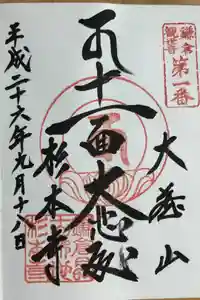 鎌倉
観世音
第一番
大蔵山
十一面大悲殿
杉本寺
平成二十六年九月十八日